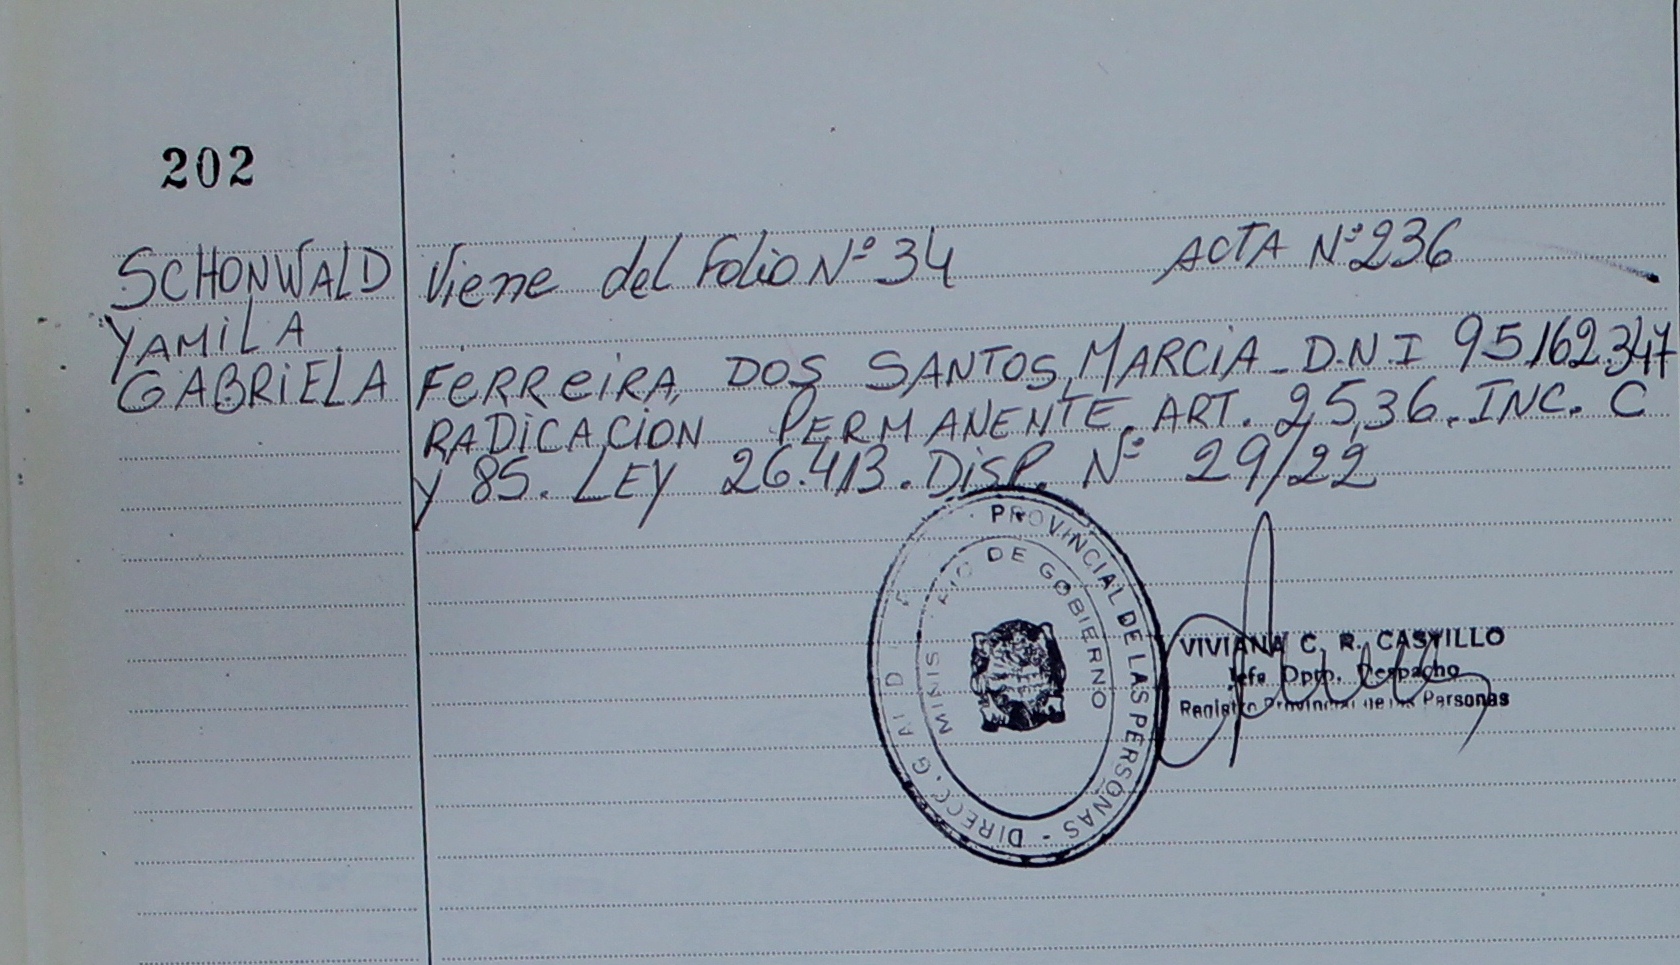 202
SCHONWALD
YAMILA
GABRIELA
Viene del Folio Nº 34 ACTA Nº 236
FERREIRA DOS SANTOS, MARCIA - D.N.I 95162.347
RADICACION PERMANENTE. ART. 25,36. INC. C
Y 85. LEY 26.413. DISP. Nº 29/22
PROVINCIAL DE LAS PERSONAS - DIRECC. G
DE GOBIERNO
VIVIANA C. R. CASTILLO
Jefe Dpto. Despacho
Registro Provincial de las Personas